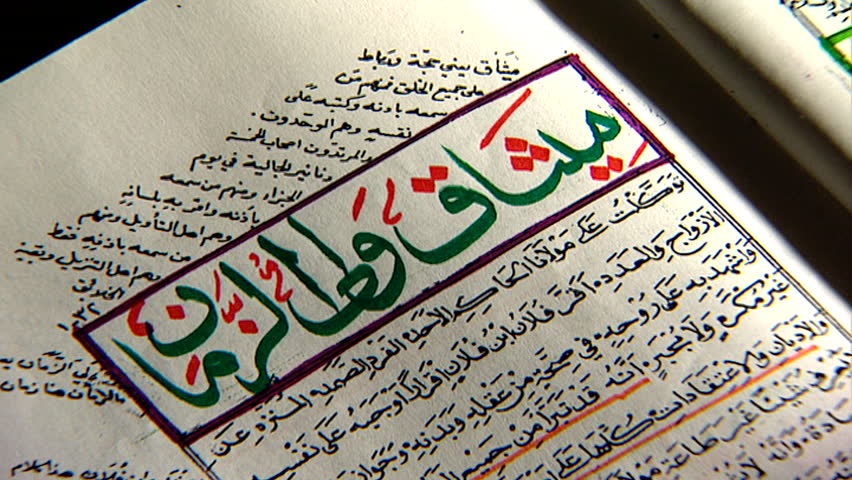 ميثاق يعني حجة ورباط
على جميع الخلق فمنهم من
سمعه باذنه وكتبه على
نفسه وهم الموحدون.
والمرتدون اصحاب الخمسة
دنانير الجالية في يوم
الجزاء ومنهم من سمعه
باذنه واقر به بلسانه
وهم اهل التأويل ومنهم
من سمعه باذنه فقط
وهم اهل التنزيل وبقية
الخلائق
ميثاق ولي الزمان
توكلت على مولانا الحاكم الاحد الفرد الصمد المنزه عن
الازواج والعدد. اقر فلان ابن فلان اقراراً اوجبه على نفسه
واشهد به على روحه في صحة من عقله وبدنه وجواز
غير مكره ولا مجبر انه قد تبرأ من جميع
والاديان والاعتقادات كلها على
شيئا غير طاعة
وانه لا